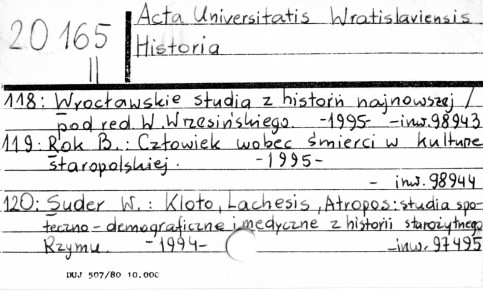 20165
II
Acta Universitatis Wratislaviensis
Historia
118: Wrocławskie studia z historii najnowszej /
pod red. W. Wrzesińskiego. -1995- -inw. 98943
119: Rok B.: Człowiek wobec śmierci w kulturze
staropolskiej. -1995-
- inw. 98944
120: Suder W.: Kloto, Lachesis, Atropos: studia spo-
łeczno-demograficzne i medyczne z historii starożytnego
Rzymu. -1994- -inw. 97495
DUJ 507/80 10.000